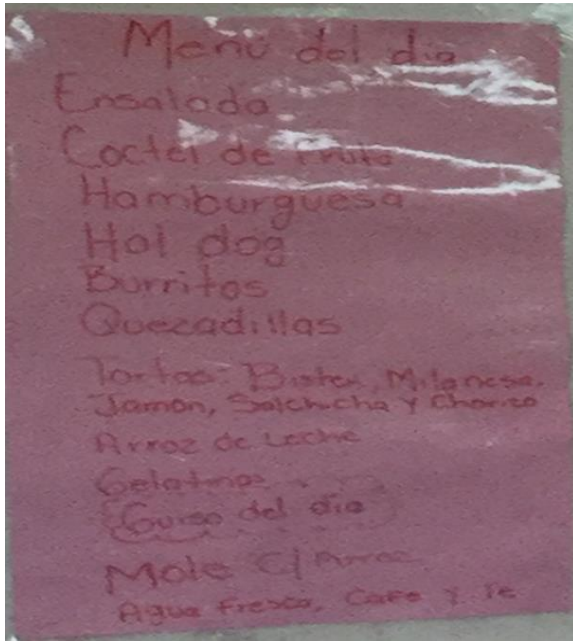 Menú del dia
Ensalada
Coctel de Fruta
Hamburguesa
Hot dog
Burritos
Quezadillas
Tortas: Bistex, Milanesa,
Jamon, Salchicha y Chorizo
Arroz de Leche
Gelatinas
Guiso del dia
Mole c/ Arroz
Agua Fresca, Cafe y Te